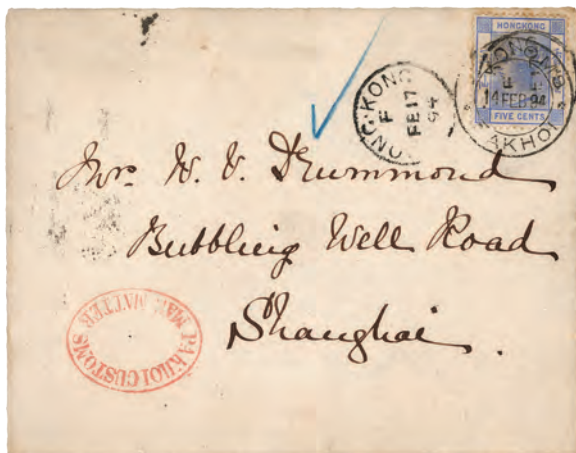 HONGKONG
FIVE CENTS
CUSTOMS
14 FEB 94
PAKHOI
HONG KONG
F
FE 17
94
Mrs W. V. Drummond
Bubbling Well Road
Shanghai.
PAKHOI CUSTOMS
MAIL MATTER